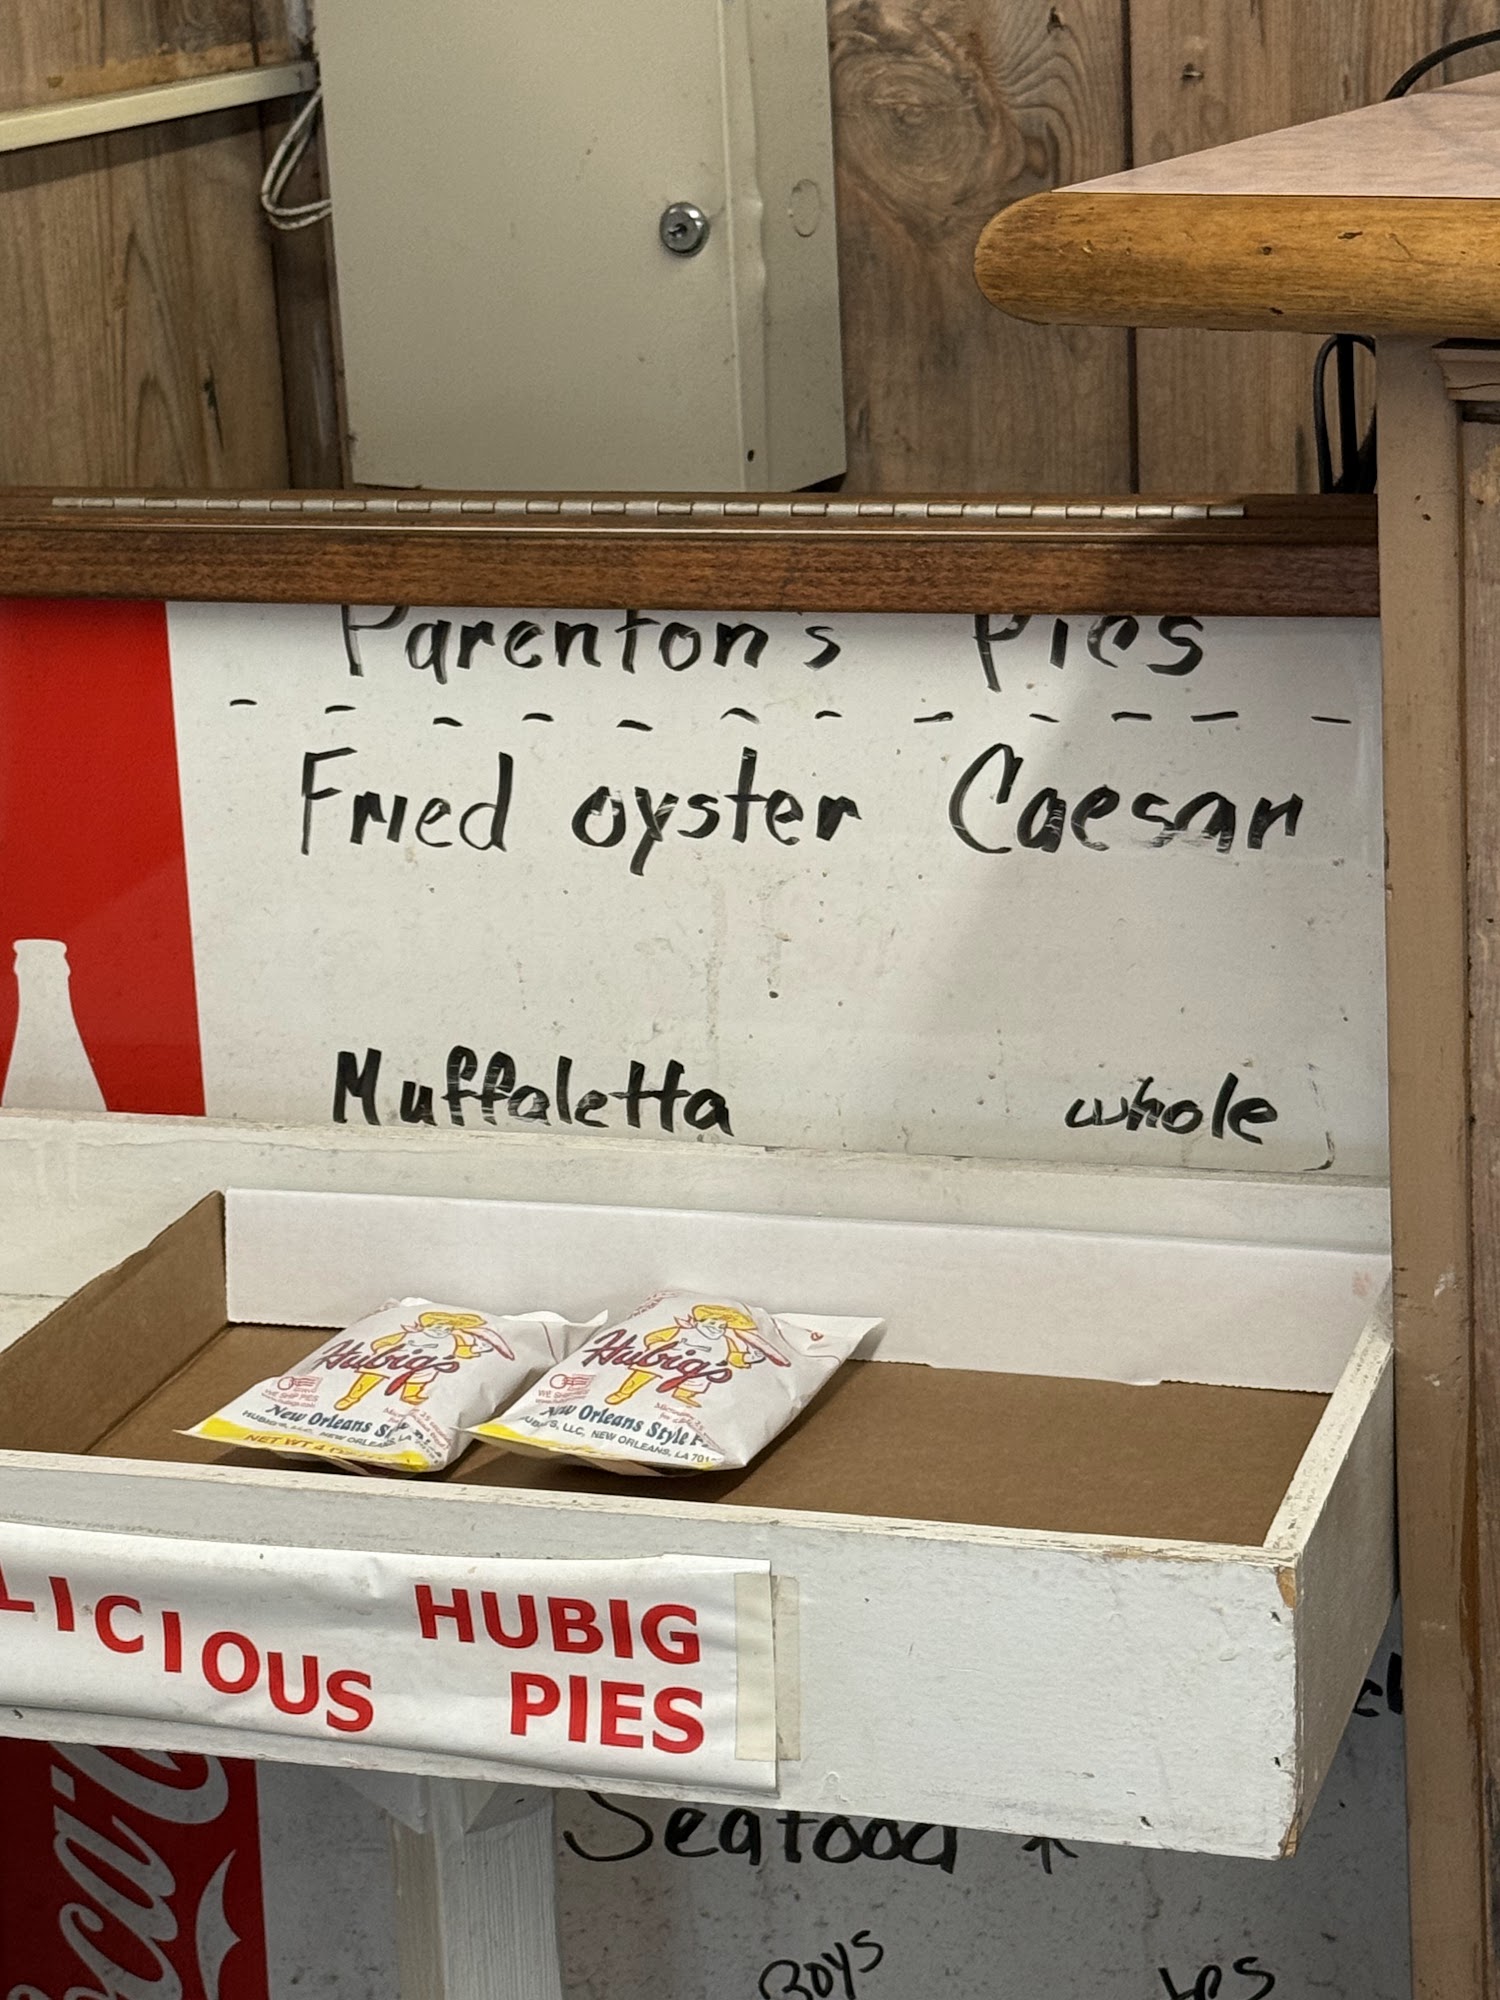 Parenton's Pies
Fried oyster Caesar
Muffaletta whole
Hubig's
WE SHIP PIES
New Orleans St
HUBIG'S, LLC, NEW ORLEANS, LA
NET WT 4
Hubig's
WE SHIP
New Orleans Style P
S, LLC, NEW ORLEANS, LA 701
LICIOUS HUBIG
PIES
Seafood
Boys